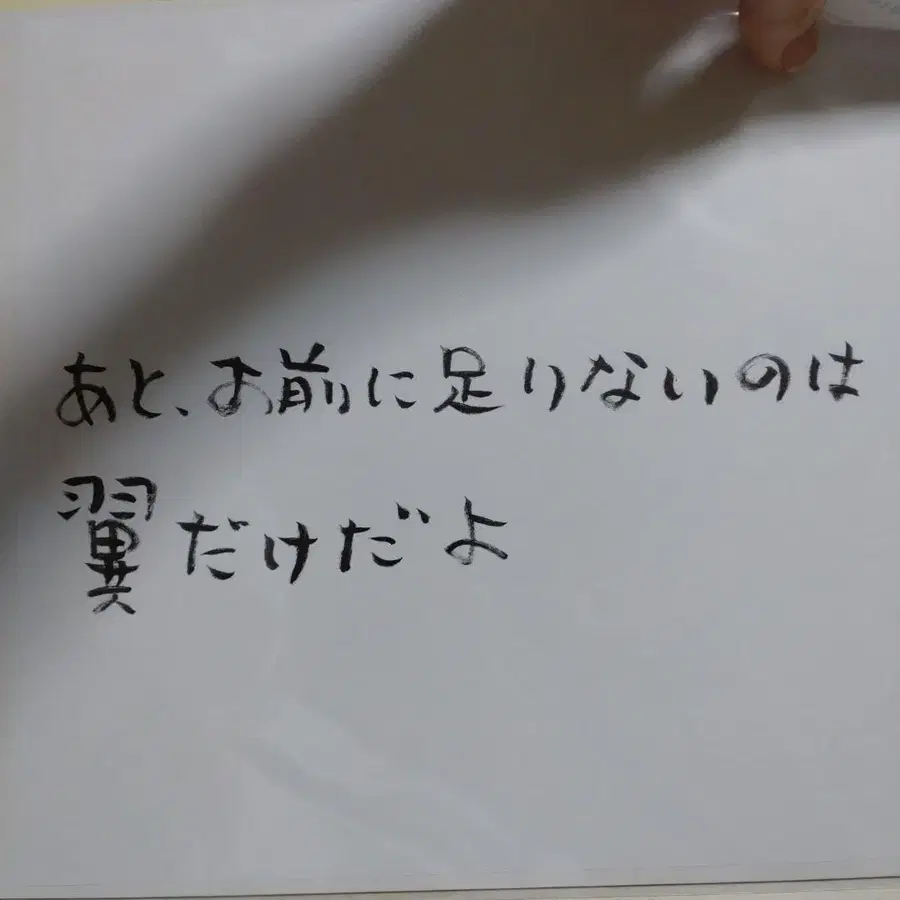 あと、お前に足りないのは
翼だけだよ